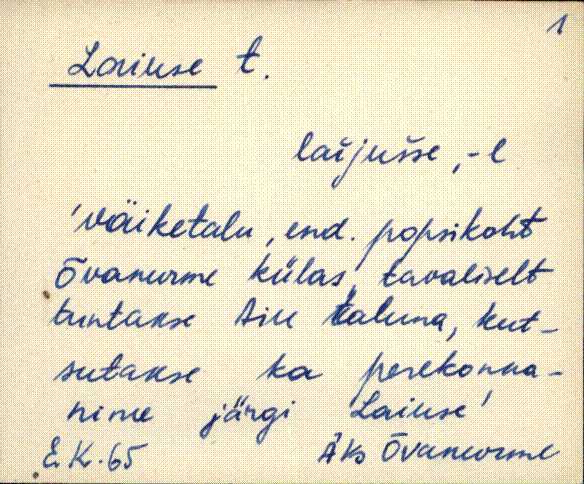 1
Laiuse t.
laijusse, -l
'väiketalu, end. popsikoht
Õvanurme külas, tavaliselt
tuntakse Aiu taluna, kut-
sutakse ka perekonna-
nime järgi Laiuse'
E.K. 65 Äks Õvanurme